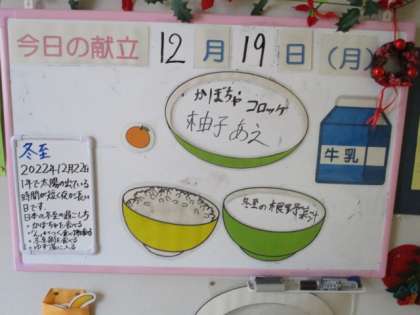 今日の献立 12月19日(月)
かぼちゃコロッケ
柚子あえ
牛乳
冬至の根菜汁
冬至
2022年12月22日
1年で太陽の出ている
時間が短く夜が長い
日です。
日本の冬至の過ごし方
・かぼちゃを食べる
・ゆず湯に入る